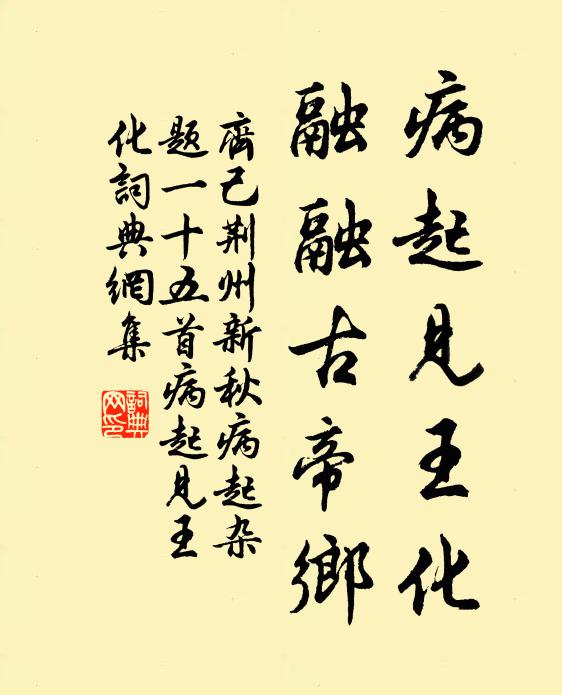 病起見王化
融融古帝鄉
齊己荆州新秋病起杂
题一十五首病起見王
化詞典網集
詞典
网印